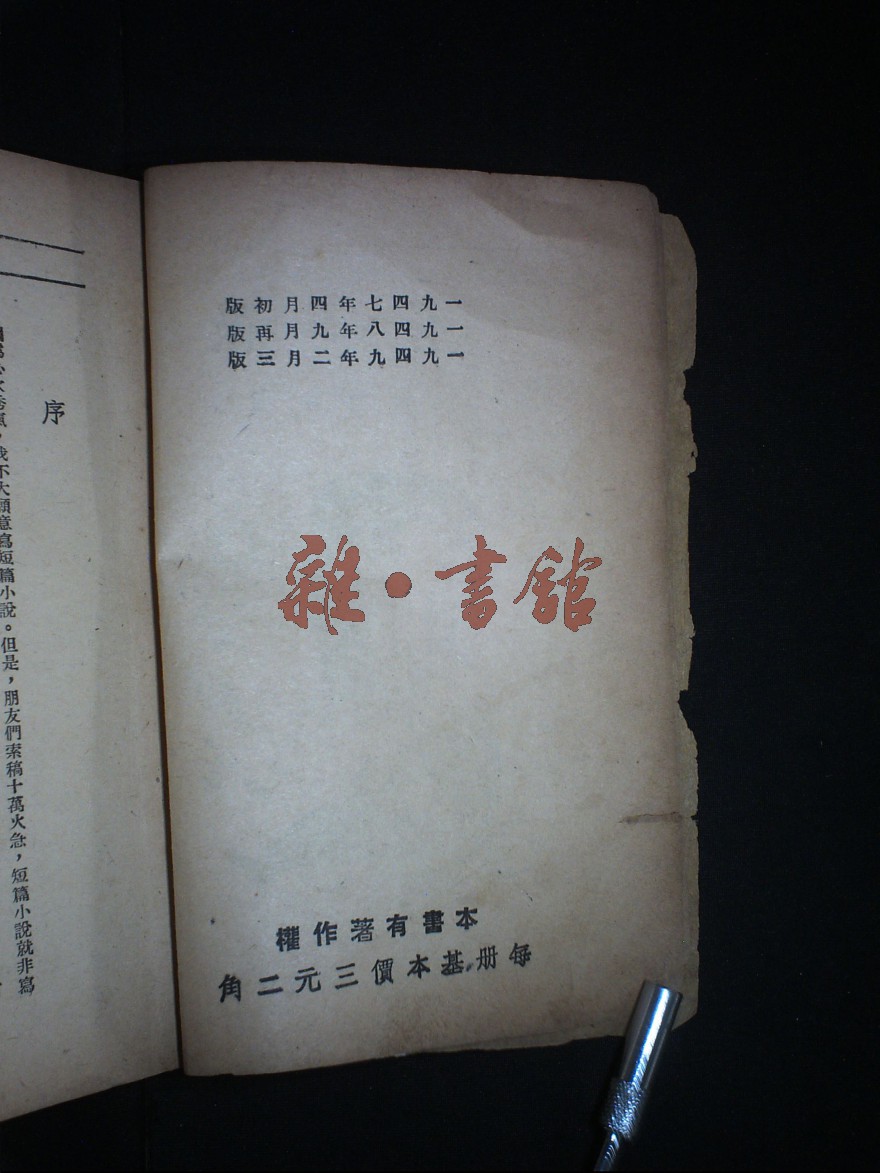 一九四七年四月初版
一九四八年九月再版
一九四九年二月三版
雜•書館
本書有著作權
每册基本價三元二角
序
我不大願意寫短篇小說。但是，朋友們索稿十萬火急，短篇小說就非寫